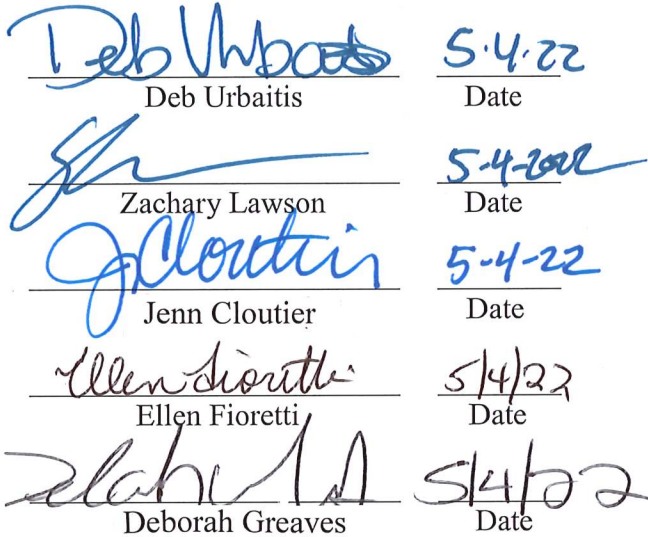 Deb Urbaitis 5·4·22
Deb Urbaitis Date
5-4-2022
Zachary Lawson Date
J Cloutier 5-4-22
Jenn Cloutier Date
Ellen Fioretti 5/4/22
Ellen Fioretti Date
5/4/22
Deborah Greaves Date